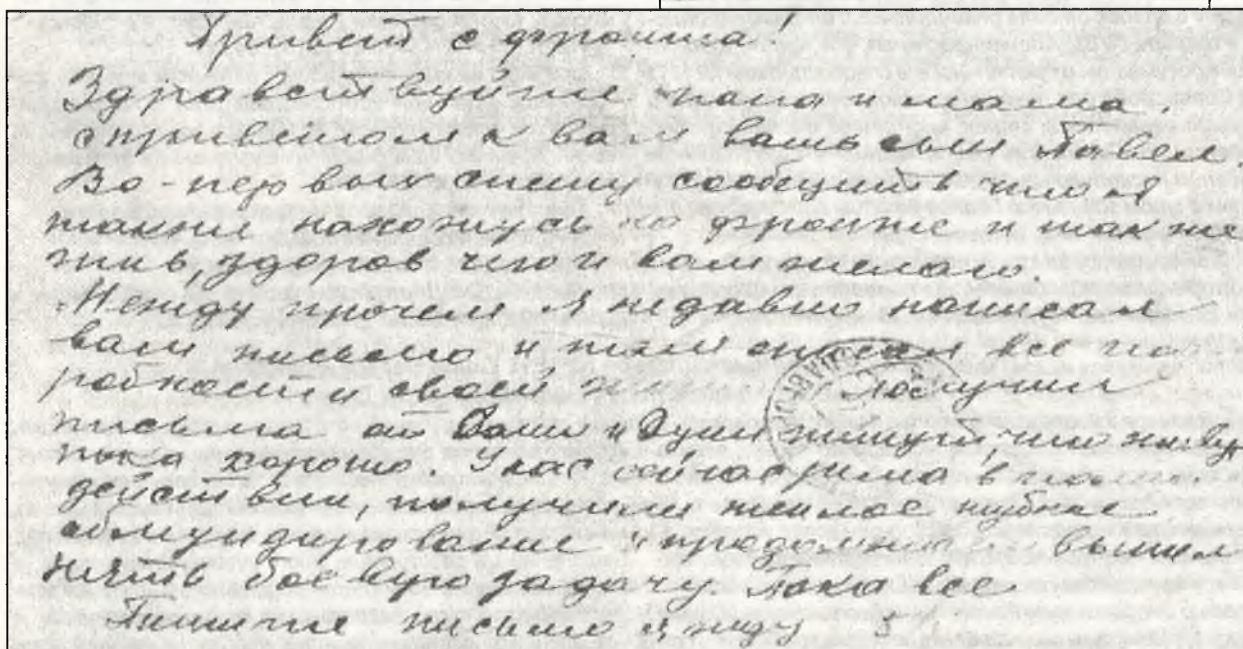 Привет с фронта!
Здравствуйте папа и мама.
с приветом к вам вашь сын Павел.
Во-первых спешу сообщить что я
также нахожусь на фронте и так же
жив, здоров чего и вам желаю
Между прочем я недавно написал
вам письмо и там описал все по
робности своей Получил
письма от и Дуси пишут, что живут
пока хорошо. У нас сейчас зима в
действии, получили теплое
обмундирование и продолжаем выпол
нять боевую задачу. Пока все
Пишите письмо я жду